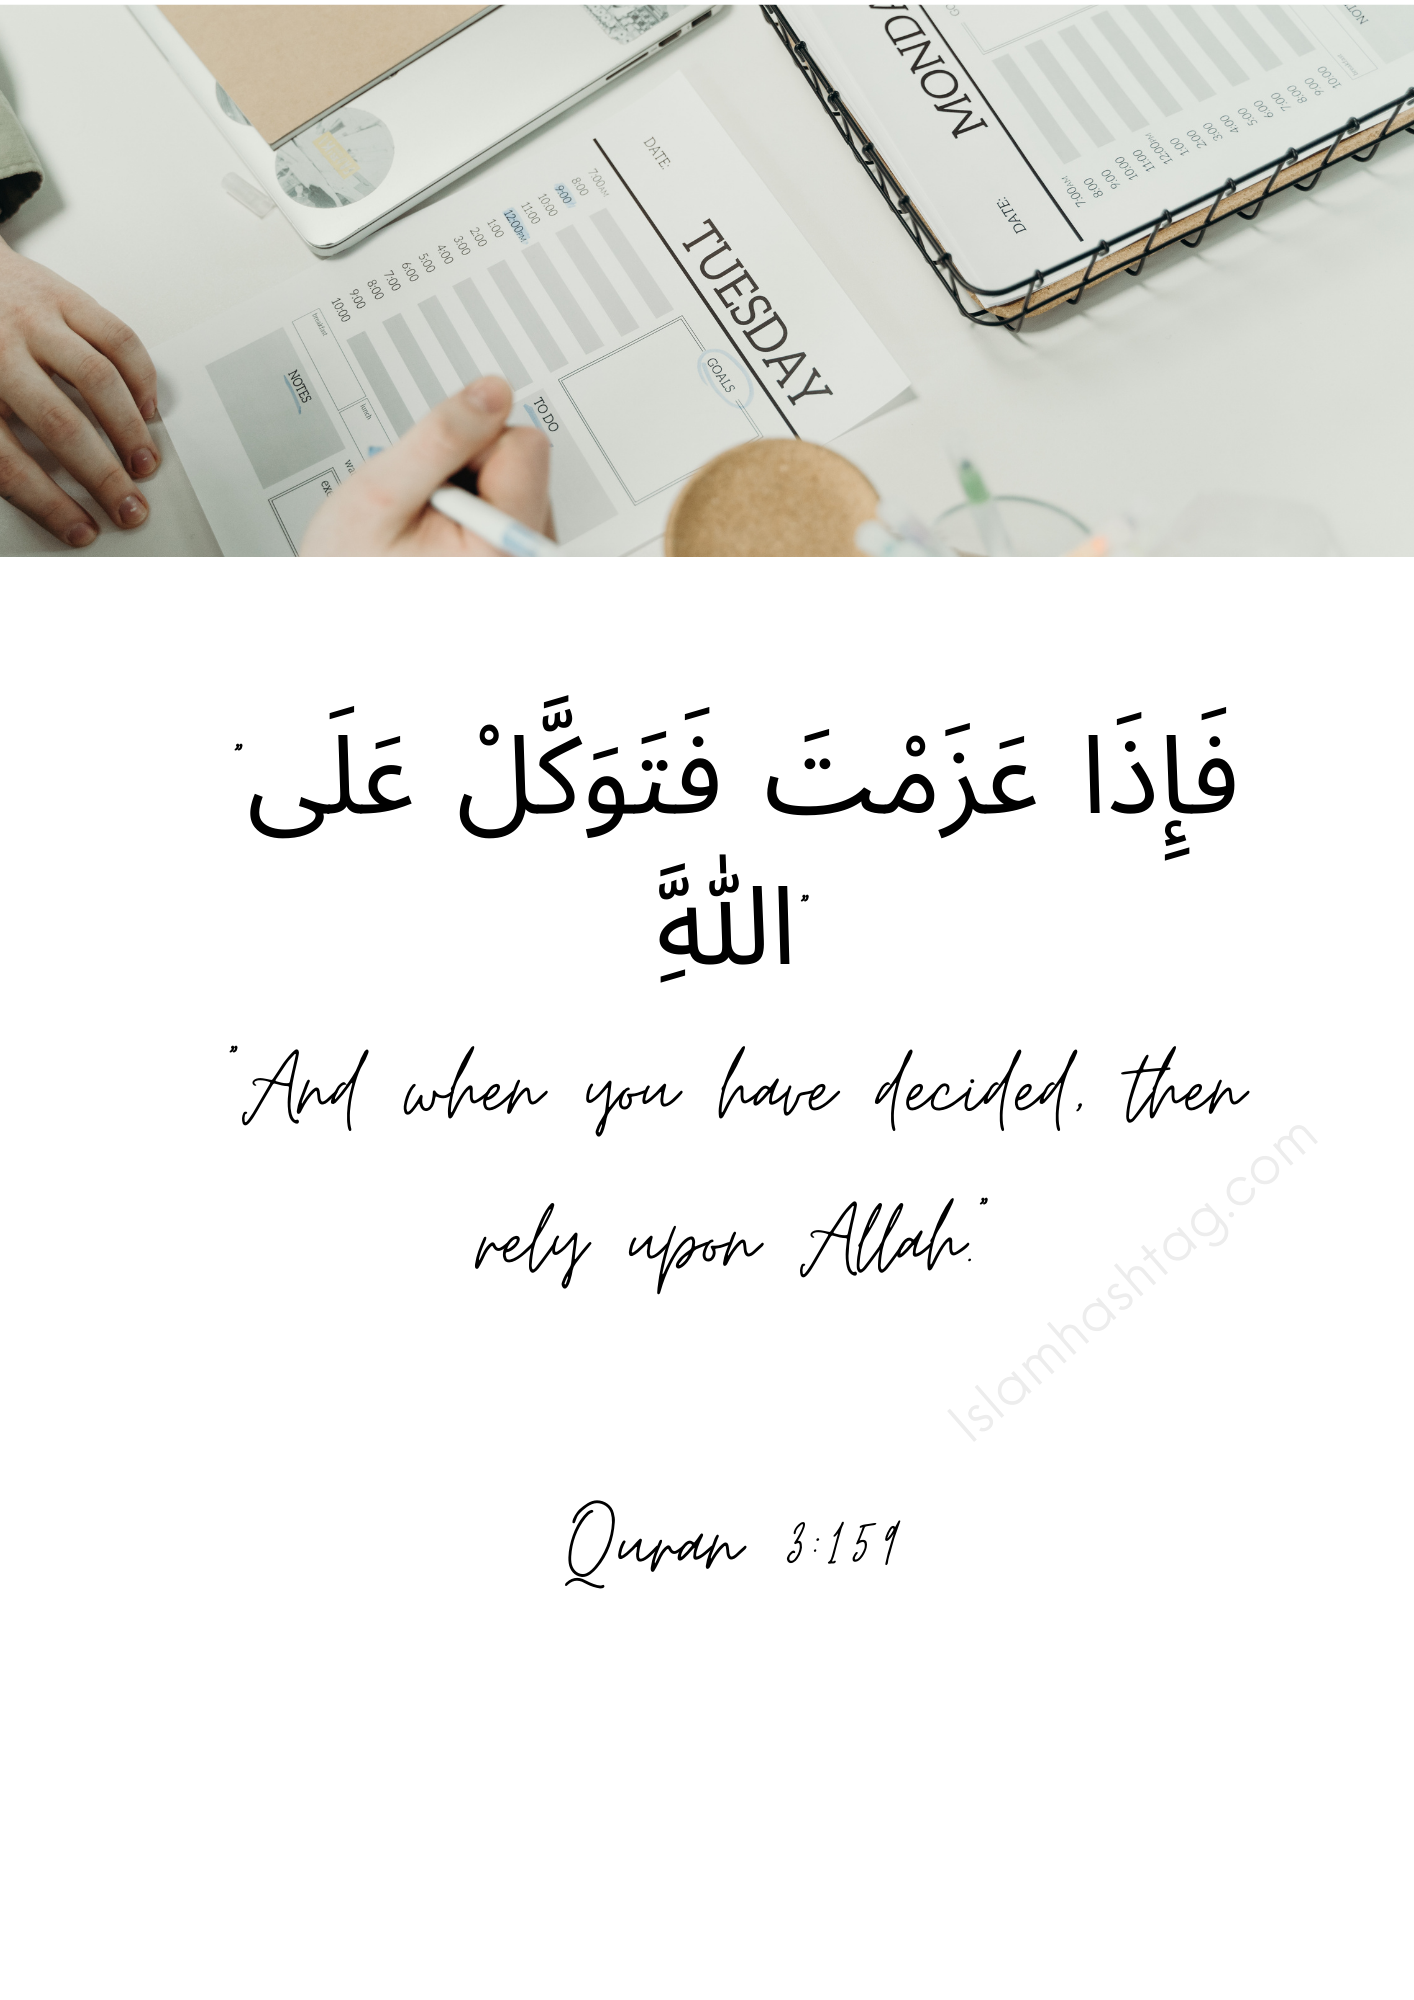 MONDA
DATE:
7:00AM
8:00
9:00
10:00
11:00
12:00PM
1:00
2:00
3:00
4:00
5:00
6:00
7:00
8:00
9:00
10:00
breakfast
NOT
GO
DATE:
TUESDAY
7:00AM
8:00
9:00
10:00
11:00
12:00PM
1:00
2:00
3:00
4:00
5:00
6:00
7:00
8:00
9:00
10:00
GOALS
TO DO
NOTES
breakfast
lunch
wa
exe
"فَإِذَا عَزَمْتَ فَتَوَكَّلْ عَلَى
اللَّهَِّ"
"And when you have decided, then
rely upon Allah."
Islamhashtag.com
Quran 3:159